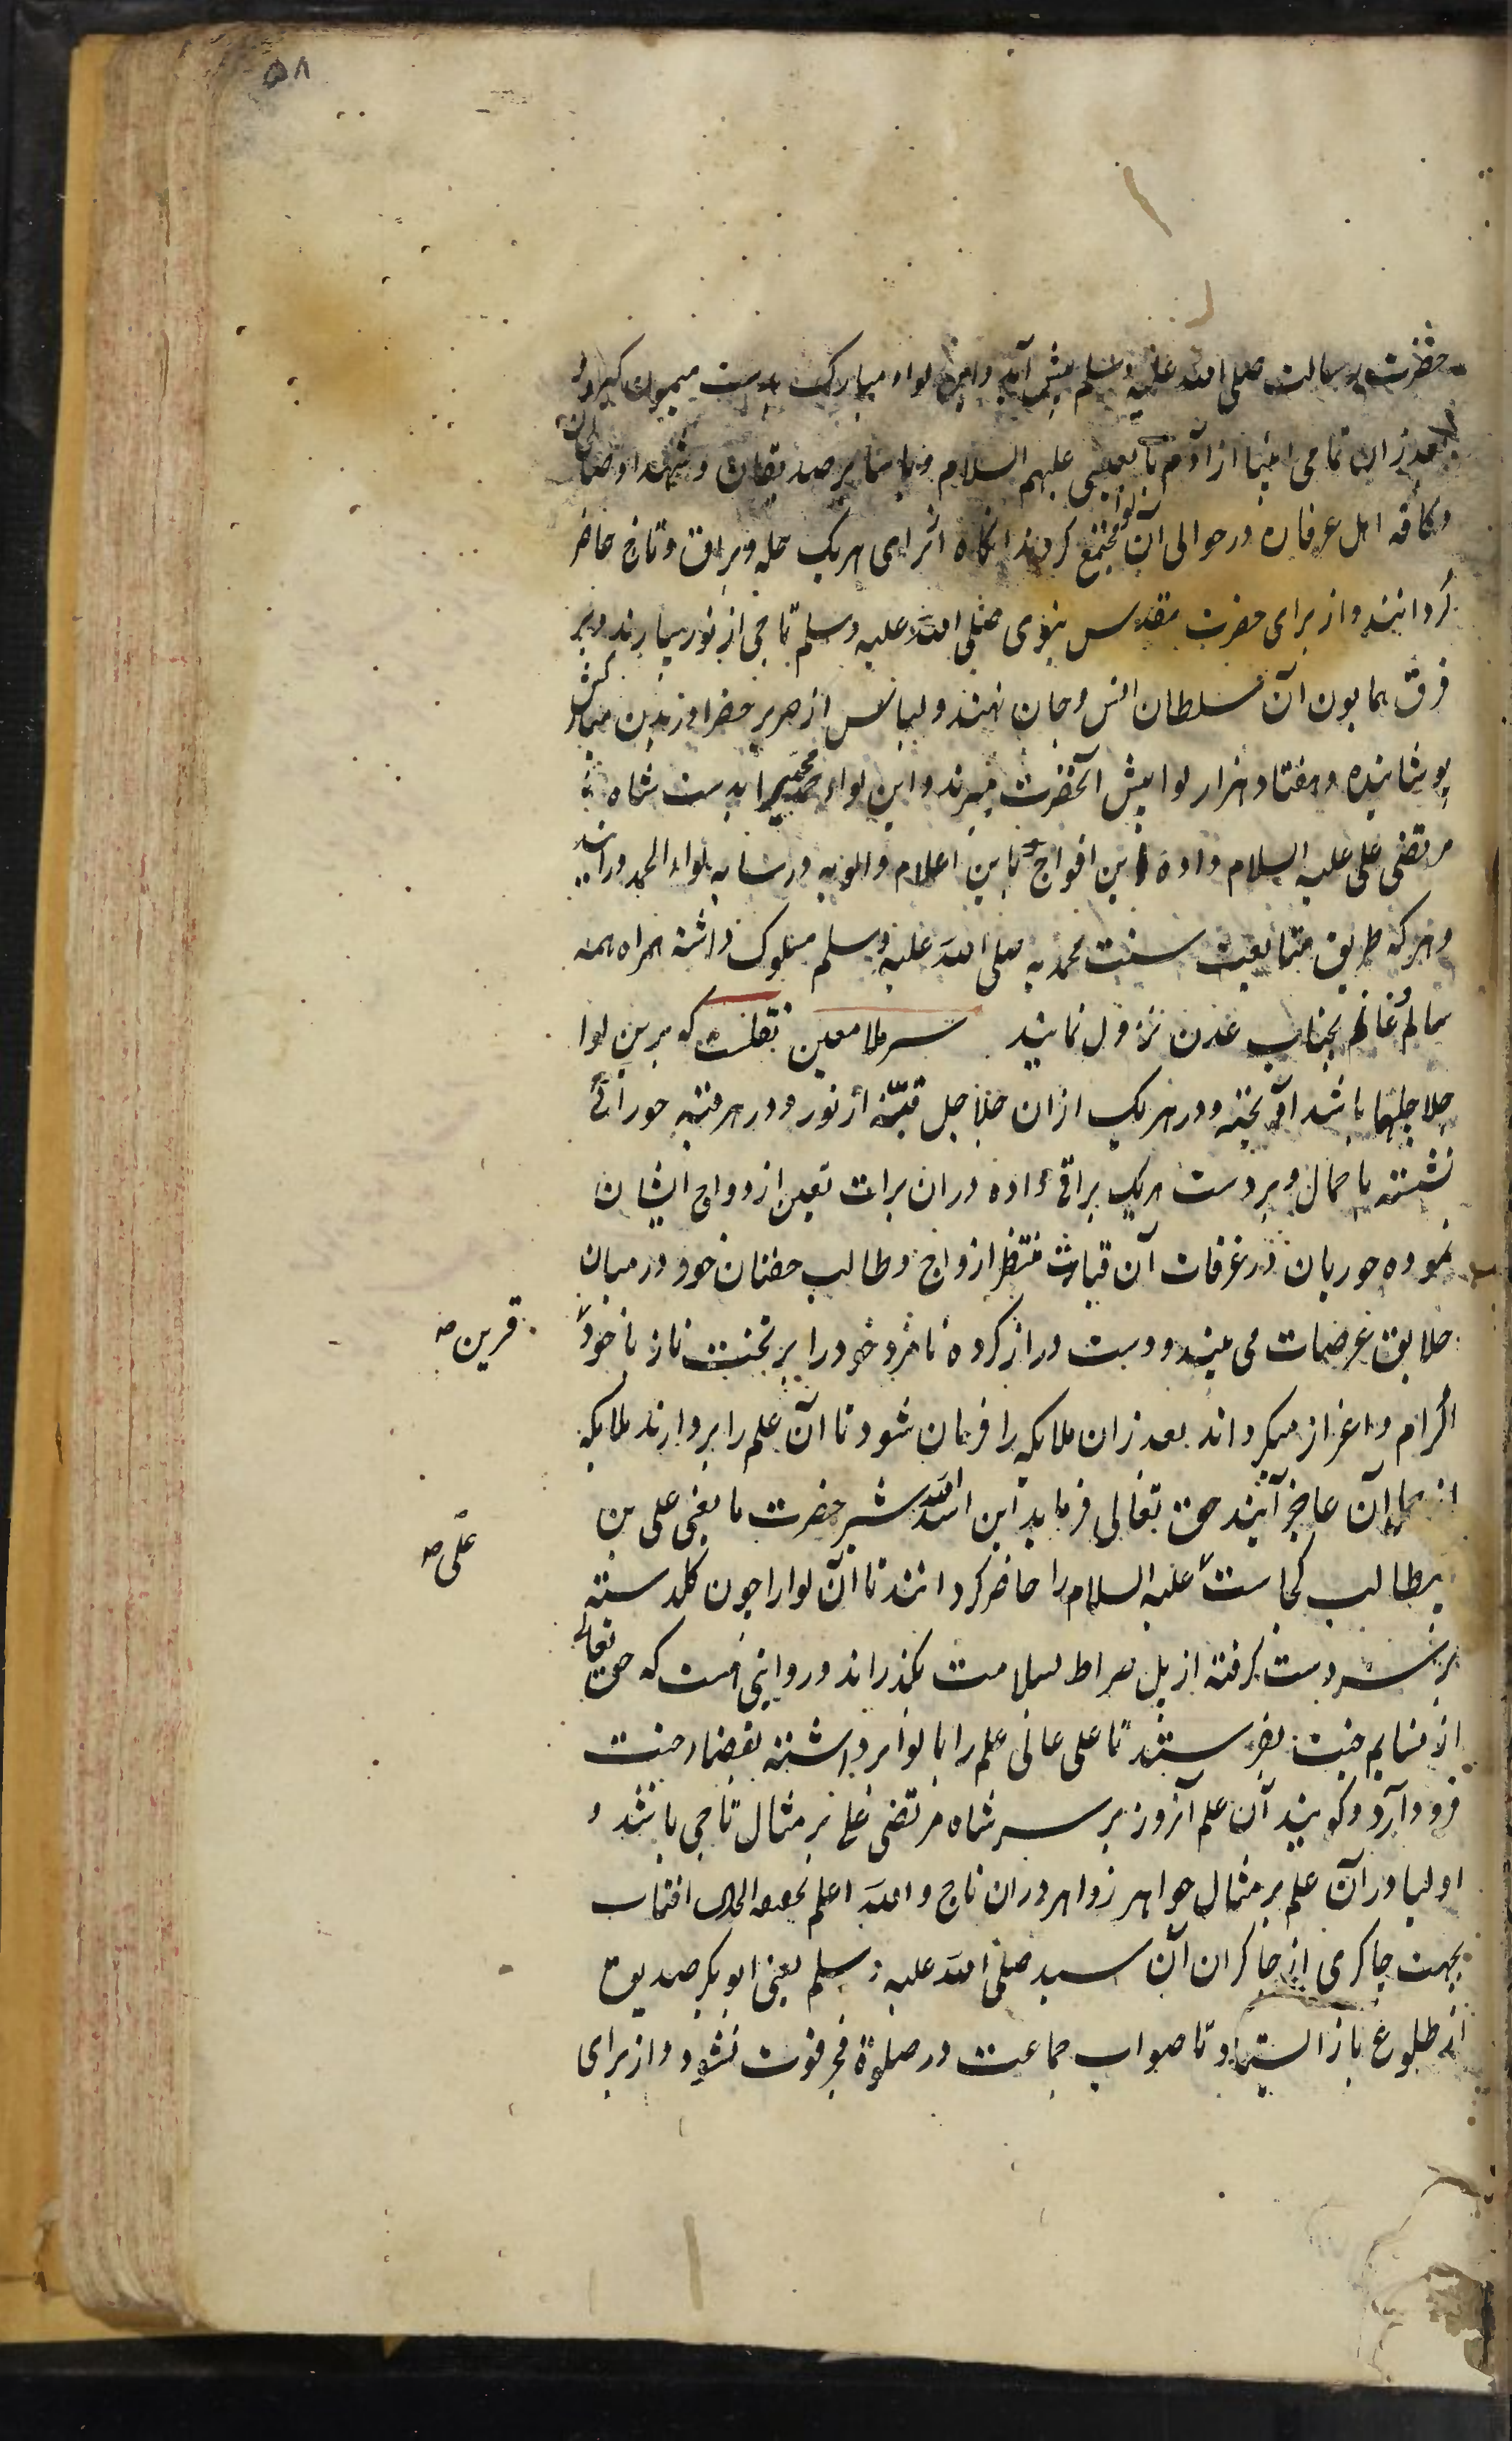 ۵۸
حضرت رسالت صلی الله علیه وسلم پیش آید و این لواء مبارک بدست میمون گیرد و
بعد زان تمامی انبیا از آدم تا بعیسی علیهم السلام و با سایر صدیقان و شهدا و صالحان
و کافه اهل عرفان در حوالی آن لوا مجتمع کردند انکاه از برای هریک حله و براق و تاج حاضر
کردانند و از برای حضرت مقدس نبوی صلی الله علیه وسلم تاجی از نور بیارند و بر
فرق همایون آن سلطان انس و جان نهند و لباس از حریر خضرا در بدن مبارکش
پوشانیده و هفتاد هزار لوا پیش آنحضرت میبرند و این لواء محمدی را بدست شاه
مرتضی علی علیه السلام داده این افواج با این اعلام و الویه در سایه لواء الحمد در آیند
و هرکه طریق متابعت سنت محمدیه صلی الله علیه وسلم مسلوک داشته همراه همه
سالم و غانم بجناب عدن نزول نمایند سر ملا معین نقلست که برین لوا
جلاجلها باشد آویخته و در هریک ازان جلاجل قبّه از نور و در هر قبه حورائی
نشسته با جمال و بر دست هریک براتی داده دران برات تعین ازدواج ایشان
نموده حوریان در غرفات آن قباب منتظر ازواج و طالب جفتان خود در میان
خلایق عرصات می بیند و دست دراز کرده نامزد خود را بر تخت ناز با خود
قرین صه
اکرام و اعزاز میکرداند بعد زان ملایکه را فرمان شود تا آن علم را بردارند ملایکه
از حمل آن عاجز آیند حق تعالی فرماید این اسد الله شیر حضرت ما یعنی علی بن
علی صه
بیطالب کجاست علیه السلام را حاضر کردانند تا آن لوا را چون کلدسته
بر سر دست کرفته از پل صراط بسلامت بکذراند و روایتی هست که حق تعالی
از نسایم جنت بفرستد تا علی عالی علم را با لوا برداشته بفضاء جنت
فرود آرد و کویند آن علم آنروز بر سر شاه مرتضی علی بر مثال تاجی باشد و
اولیا در آن علم بر مثال جواهر زواهر دران تاج والله اعلم بحقیقه الحال افتاب
بجهت چاکری از چاکران آن سید صلی الله علیه وسلم یعنی ابو بکر صدیق
از طلوع باز الستاد تا صواب جماعت در صلوة فجر فوت نشود و از برای